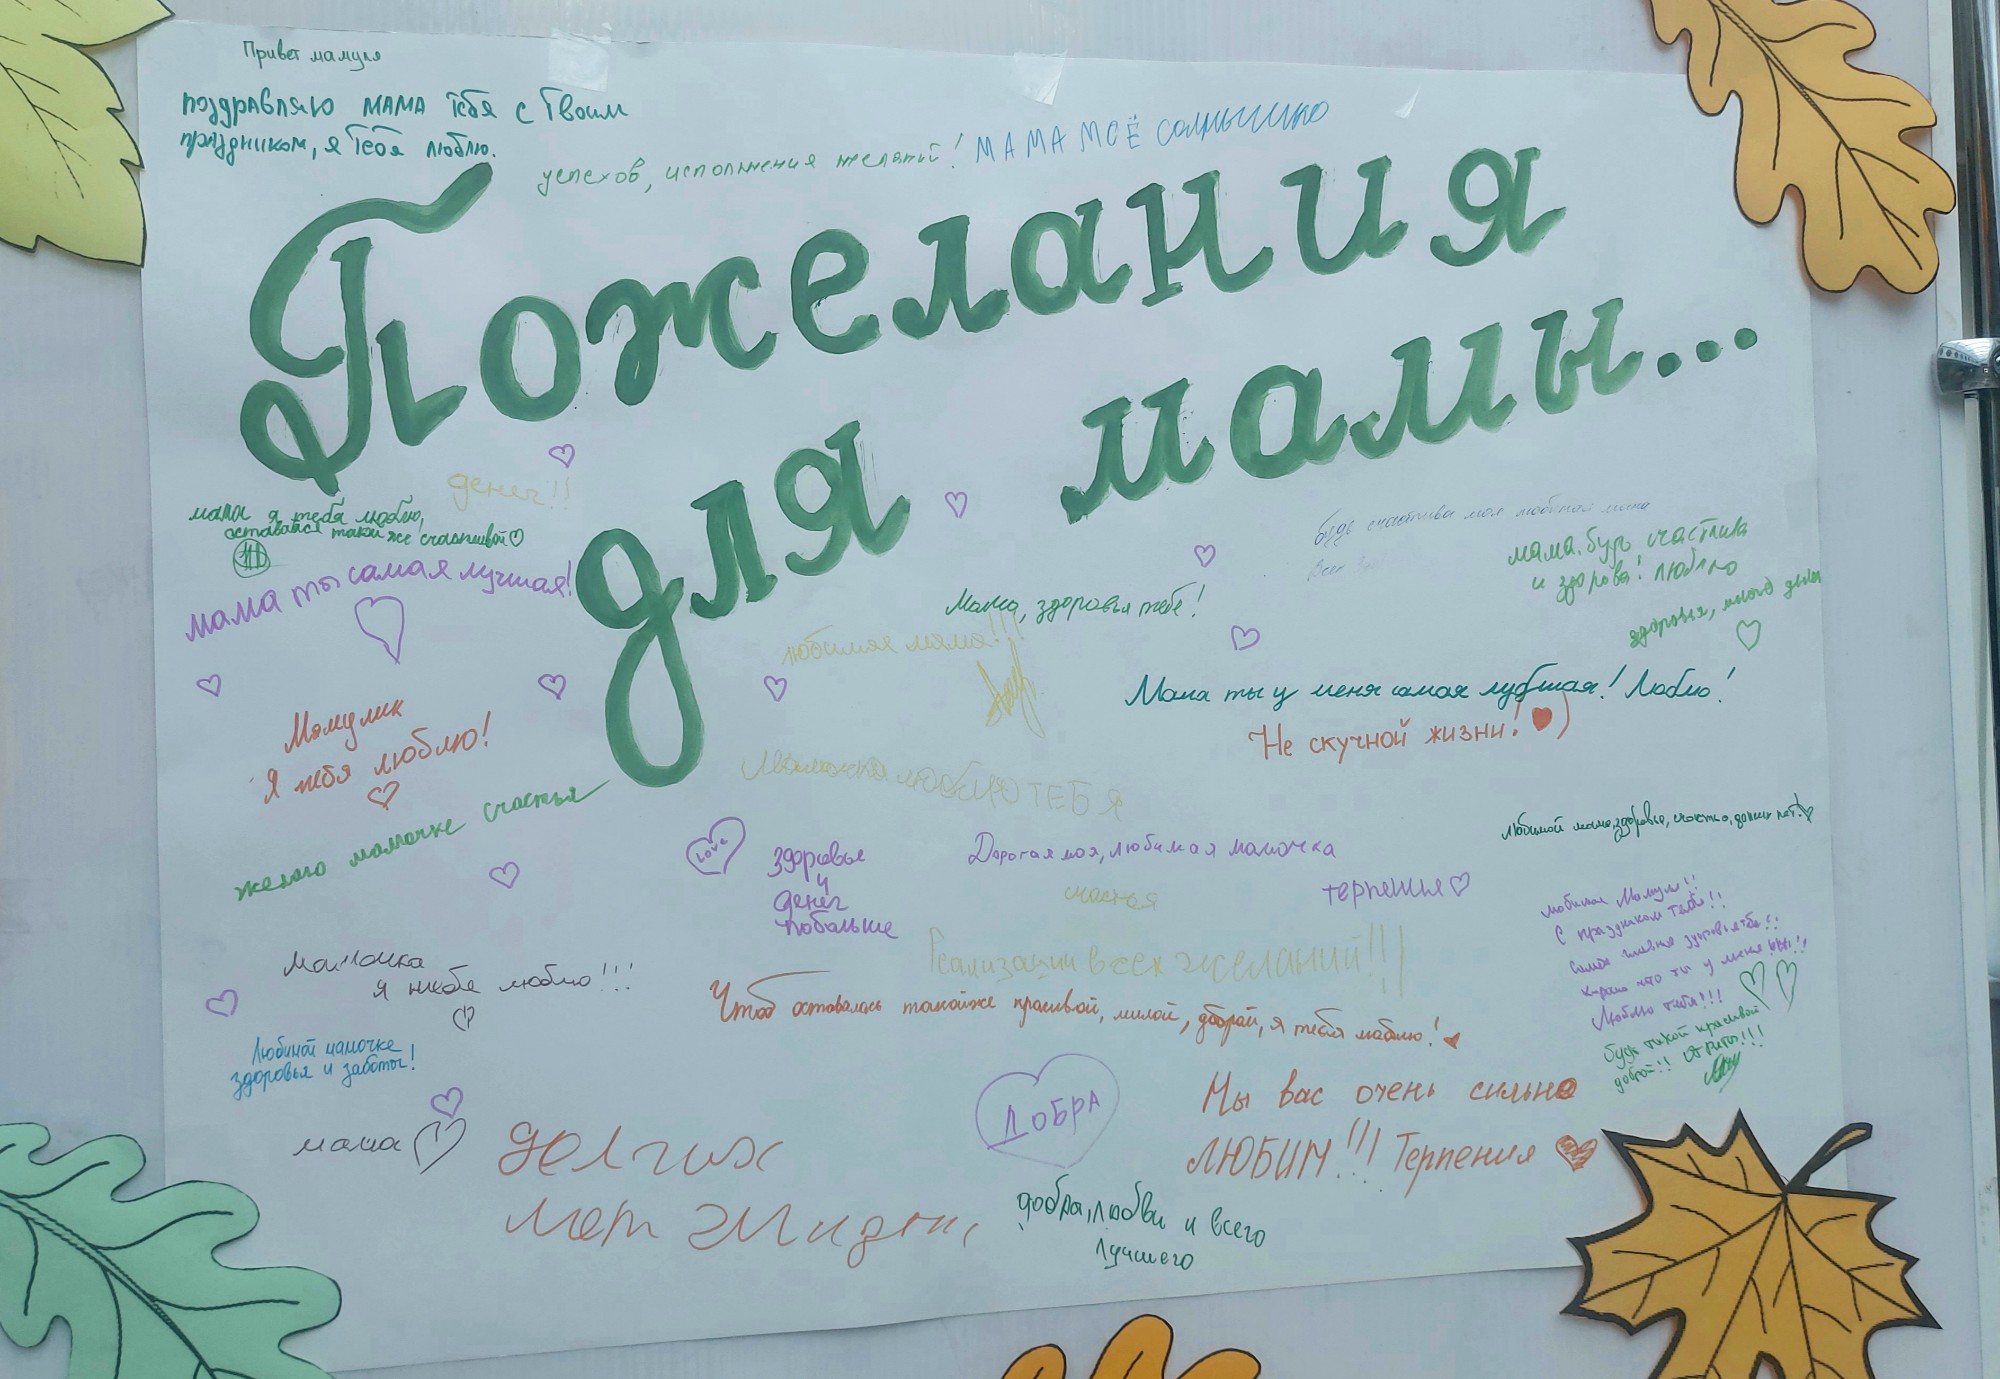 Привет мамуля
поздравляю МАМА тебя с Твоим
праздником, я Тебя люблю.
успехов, исполнения желаний!
МАМА МОЁ солнышко
Пожелания
для мамы...
денег!!
мама я тебя люблю,
оставайся такой же счастливой
мама ты самая лучшая!
будь счастлива моя любимая мама
всех
мама, будь счастлива
и здорова! люблю
здоровья, много денег
Мама, здоровья тебе!
любимая мама!!!
Мама ты у меня самая лучшая! Люблю!
Не скучной жизни! )
Мамулик
Я тебя люблю!
Мамочка люблю ТЕБЯ
желаю мамочке счастья
Любимой маме, здоровья, счастья, долгих лет!
LOVE
здоровье
и
денег
побольше
Дорогая моя, любимая мамочка
счастья
терпенья
любимая Мамуля!!
С праздником тебя!!
Самое главное здоровья тебе!!
Люблю тебя!!!
будь такой красивой
доброй!!
Реализации всех желаний!!!
Мамочка
я тебя люблю!!!
Чтоб оставалась такойже красивой, милой, доброй, я тебя люблю!
Любимой мамочке
здоровья и заботы!
мама
долгих
лет жизни,
ДОБРА
Мы вас очень сильно
ЛЮБИМ!!! Терпения
добра, любви и всего
лучшего